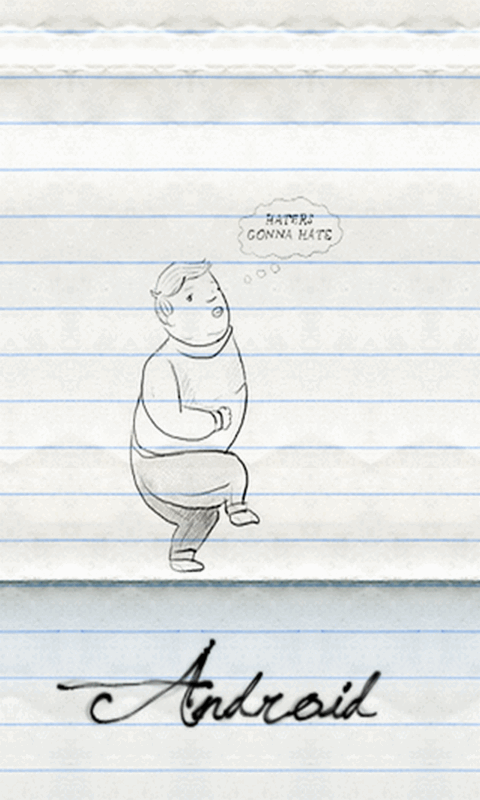 HATERS
GONNA HATE
Android